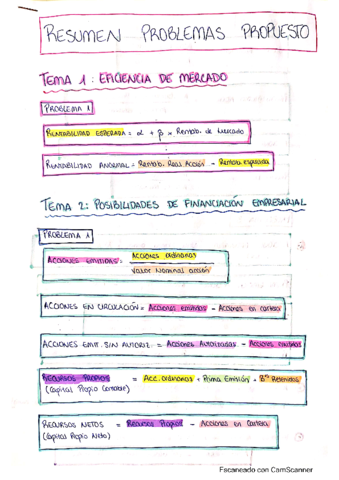 RESUMEN PROBLEMAS PROPUESTO
TEMA 1: EFICIENCIA DE MERCADO
PROBLEMA 1
RENTABILIDAD ESPERADA = α + β × Rentab. de Mercado
RENTABILIDAD ANORMAL = Rentab. Real Acción - Rentab. Esperada
TEMA 2: POSIBILIDADES DE FINANCIACIÓN EMPRESARIAL
PROBLEMA 1
ACCIONES EMITIDAS = Acciones ordinarias
Valor Nominal acción
ACCIONES EN CIRCULACIÓN = Acciones emitidas - Acciones en cartera
ACCIONES EMIT. SIN AUTORIZ. = Acciones Autorizadas - Acciones emitidas
RECURSOS PROPIOS = Acc. ordinarias + Prima Emisión + Bº Retenidos
(Capital Propio Contable)
RECURSOS NETOS = Recursos Propios - Acciones en Cartera
(Capital Propio Neto)
Escaneado con CamScanner